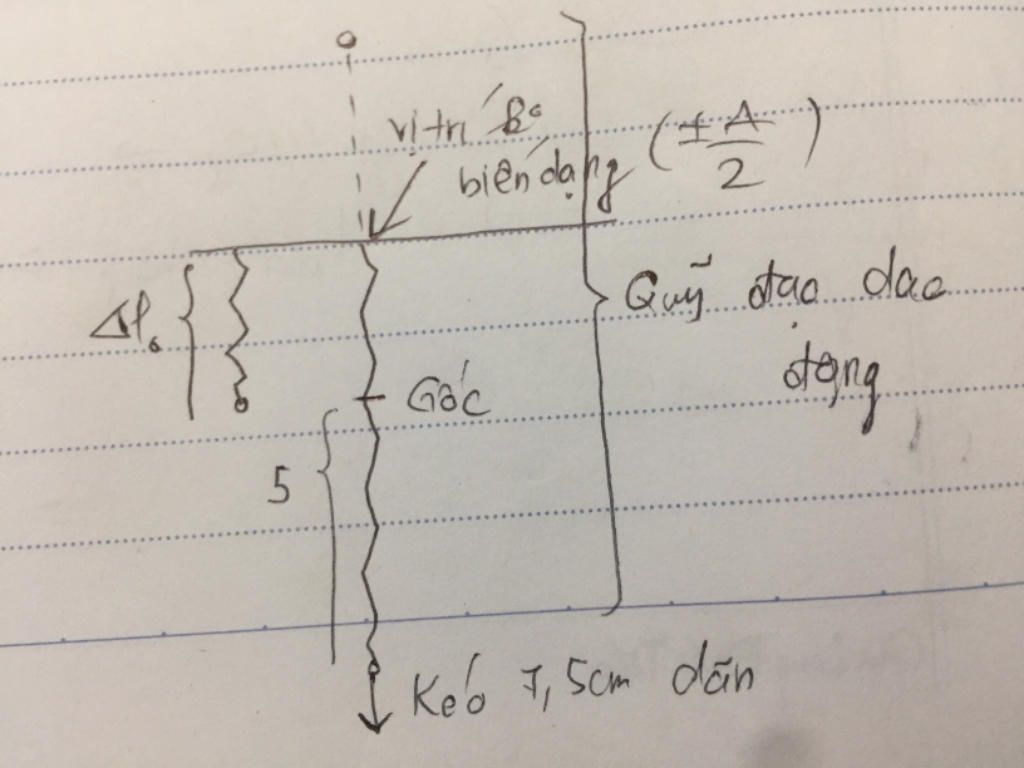 vị trí Bo
biến dạng
(±A/2)
Δl₀
Quỹ đạo dao
động
Gốc
5
Kéo 7,5cm dãn